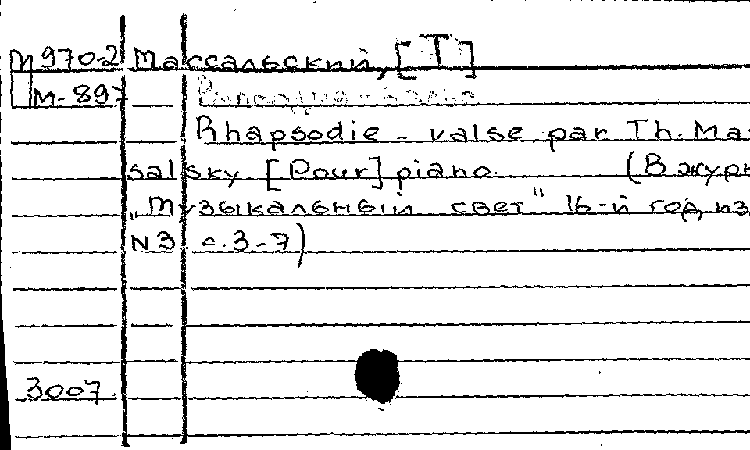 М 970-2 Массальский, [Т]
М-897 Рапсодия-вальс
Rhapsodie - valse par Th. Mas
salsky. [Pour] piano. (В журн
„Музыкальный свет" 16-й год из
N3 с. 3-7)
3007